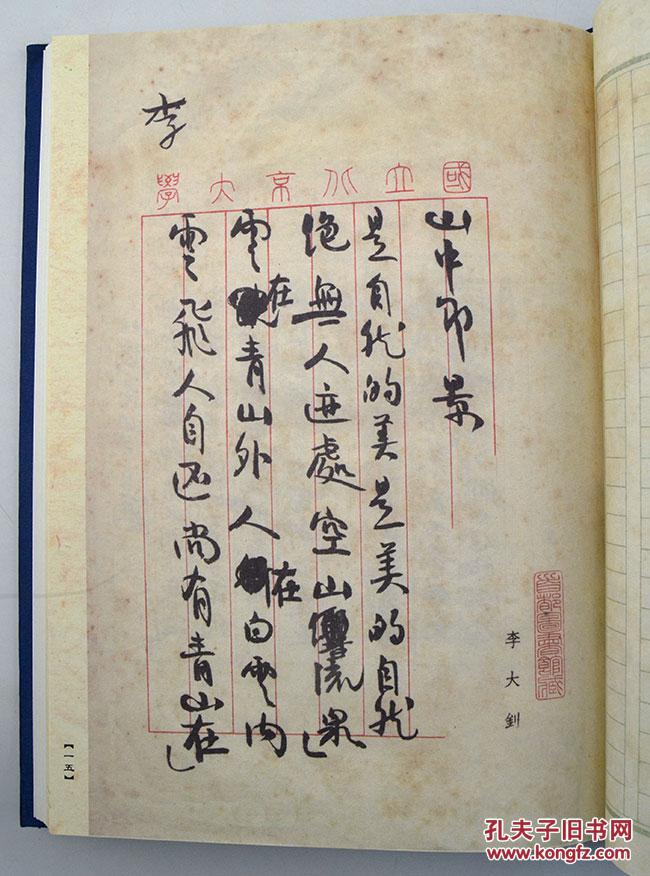 李
國立北京大學
山中即景
是自然的美是美的自然
绝無人迹處空山響流泉
雲在青山外人在白雲内
雲飛人自还尚有青山在
首都圖書館藏
李大釗
【一五】
孔夫子旧书网
www.kongfz.com